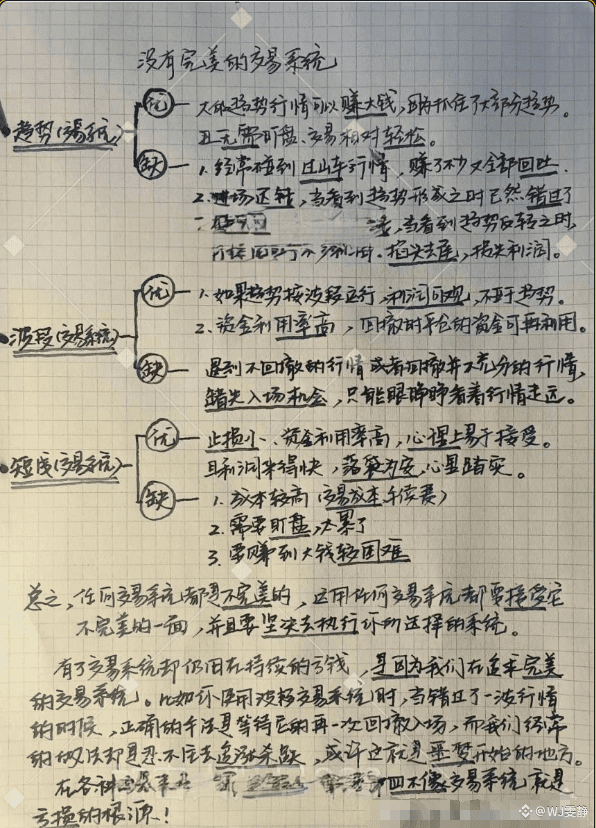 没有完美的交易系统
趋势(交易系统)
优
大的趋势行情可以赚大钱，因为抓住了大部分趋势。
且无需盯盘、交易相对轻松。
缺
1. 经常碰到过山车行情，赚了不少又全部回吐.
2. 进场迟钝，当看到趋势形成之时已然错过了
当看到趋势反转之时,
损失利润。
波段(交易系统)
优
1. 如果趋势按波段运行,利润可观,不亚于趋势。
2. 资金利用率高，回撤时平仓的资金可再利用。
缺
遇到不回撤的行情或者回撤并不充分的行情,
错失入场机会,只能眼睁睁看着行情走远。
短线(交易系统)
优
止损小、资金利用率高，心理上易于接受。
且利润来得快，落袋为安,心里踏实。
缺
1. 成本较高(交易成本,手续费)
2. 需要盯盘,太累了
3. 要赚到大钱较困难
总之,任何交易系统都是不完美的，运用任何交易系统都要接受它
不完美的一面，并且要坚决去执行你所选择的系统。
有了交易系统却仍旧在持续的亏钱，是因为我们在追求完美
的交易系统。比如你使用波段交易系统时,当错过了一波行情
的时候，正确的手法是等待它的再一次回撤入场，而我们经常
的做法却是忍不住去追涨杀跌，或许这就是噩梦开始的地方。
在各种 四不像交易系统就是
亏损的根源！
@WJ雯静